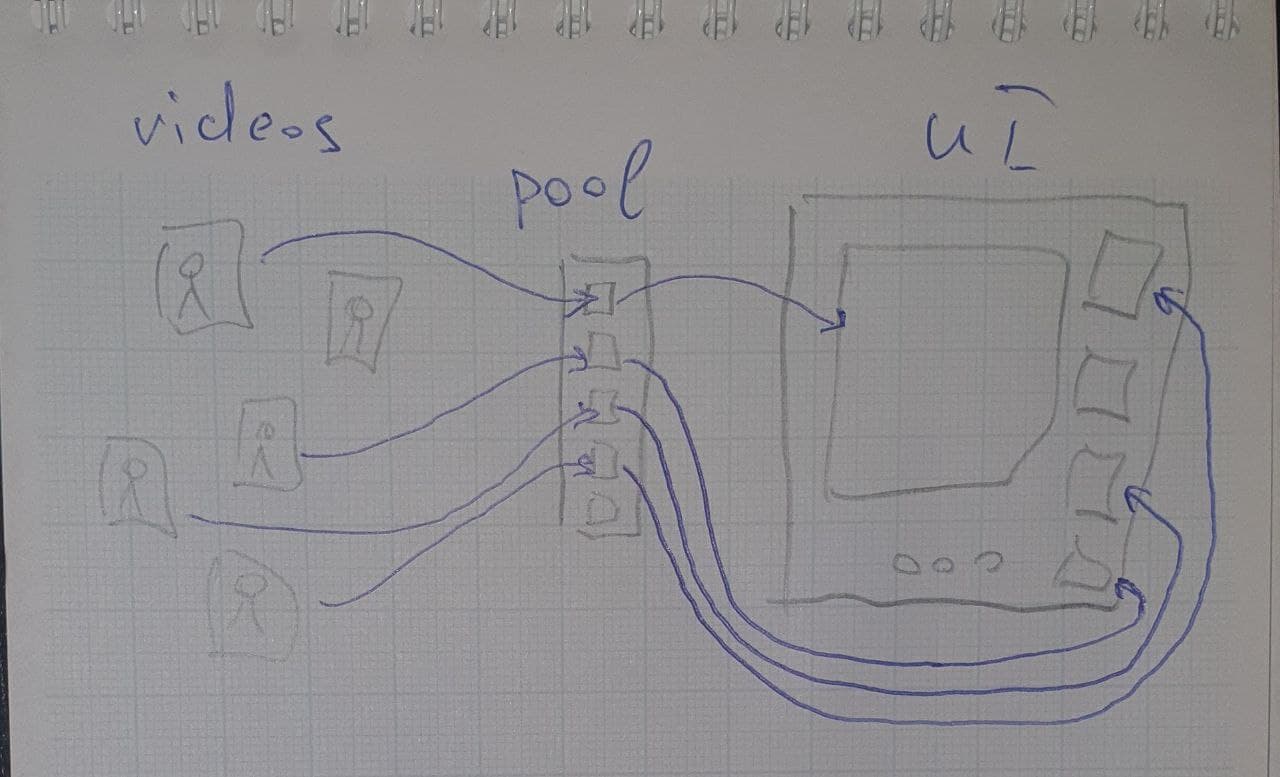 videos
pool
UI